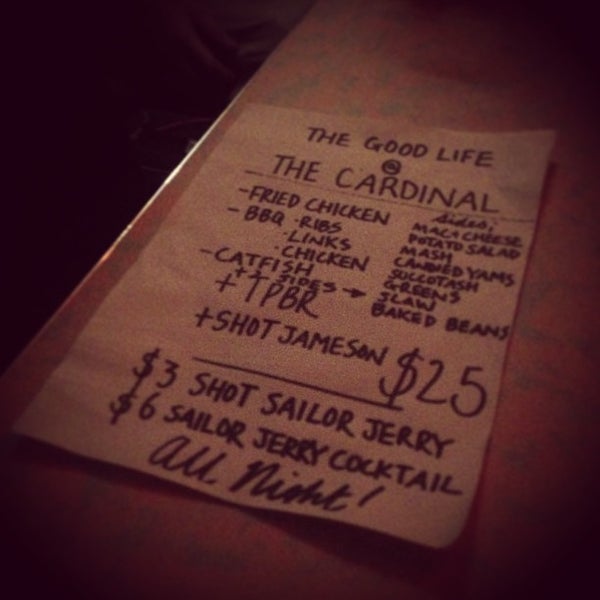 THE GOOD LIFE
@
THE CARDINAL
-FRIED CHICKEN
- BBQ · RIBS
· LINKS
· CHICKEN
- CATFISH
SIDES →
+ TPBR
+SHOT JAMESON $25
Sides:
MAC+CHEESE
POTATO SALAD
MASH
CANDIED YAMS
SUCCOTASH
GREENS
SLAW
BAKED BEANS
$3 SHOT SAILOR JERRY
$6 SAILOR JERRY COCKTAIL
All Night!